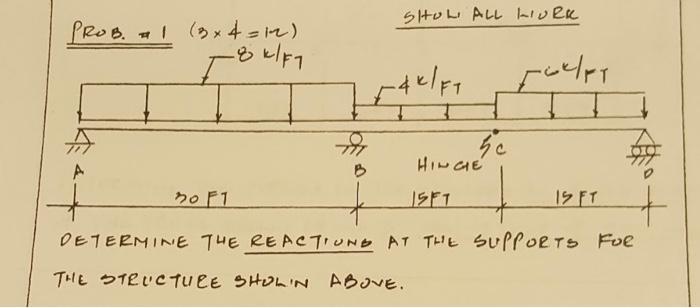 SHOW ALL WORK
PROB. #1 (3 x 4 = 12)
8 k/FT
4 k/FT
6 k/FT
C
HINGE
A
B
D
30 FT
15 FT
15 FT
DETERMINE THE REACTIONS AT THE SUPPORTS FOR
THE STRUCTURE SHOWN ABOVE.